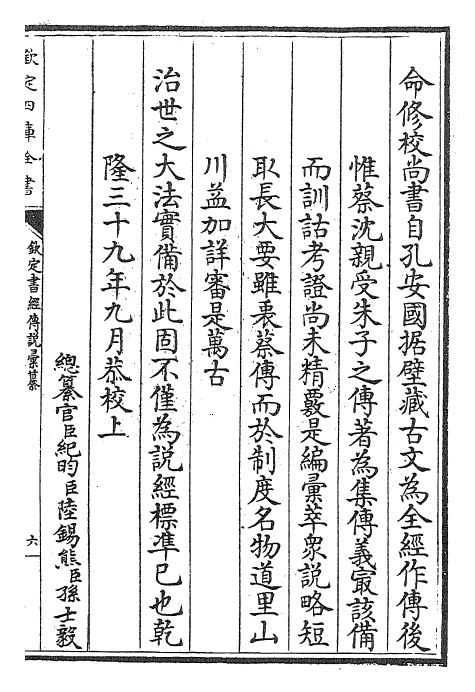 命修校尚書自孔安國据壁藏古文為全經作傳後
惟蔡沈親受朱子之傳著為集傳義㝡該備
而訓詁考證尚未精覈是編彙萃衆說略短
取長大要雖裹蔡傳而於制度名物道里山
川益加詳審是萬古
治世之大法實備於此固不僅為說經標準已也乾
隆三十九年九月恭校上
總纂官臣紀昀臣陸錫熊臣孫士毅
欽定四庫全書
欽定書經傳說彙纂
六